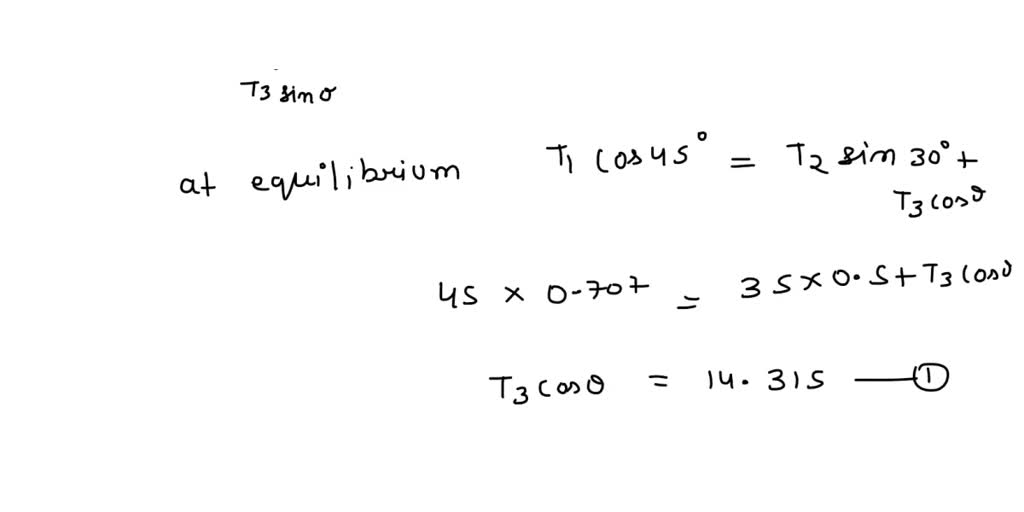 T3 sin σ
at equilibrium T1 cos 45° = T2 sin 30° +
T3 cos θ
45 × 0.707 = 35 × 0.5 + T3 cos θ
T3 cos θ = 14.315 — ①